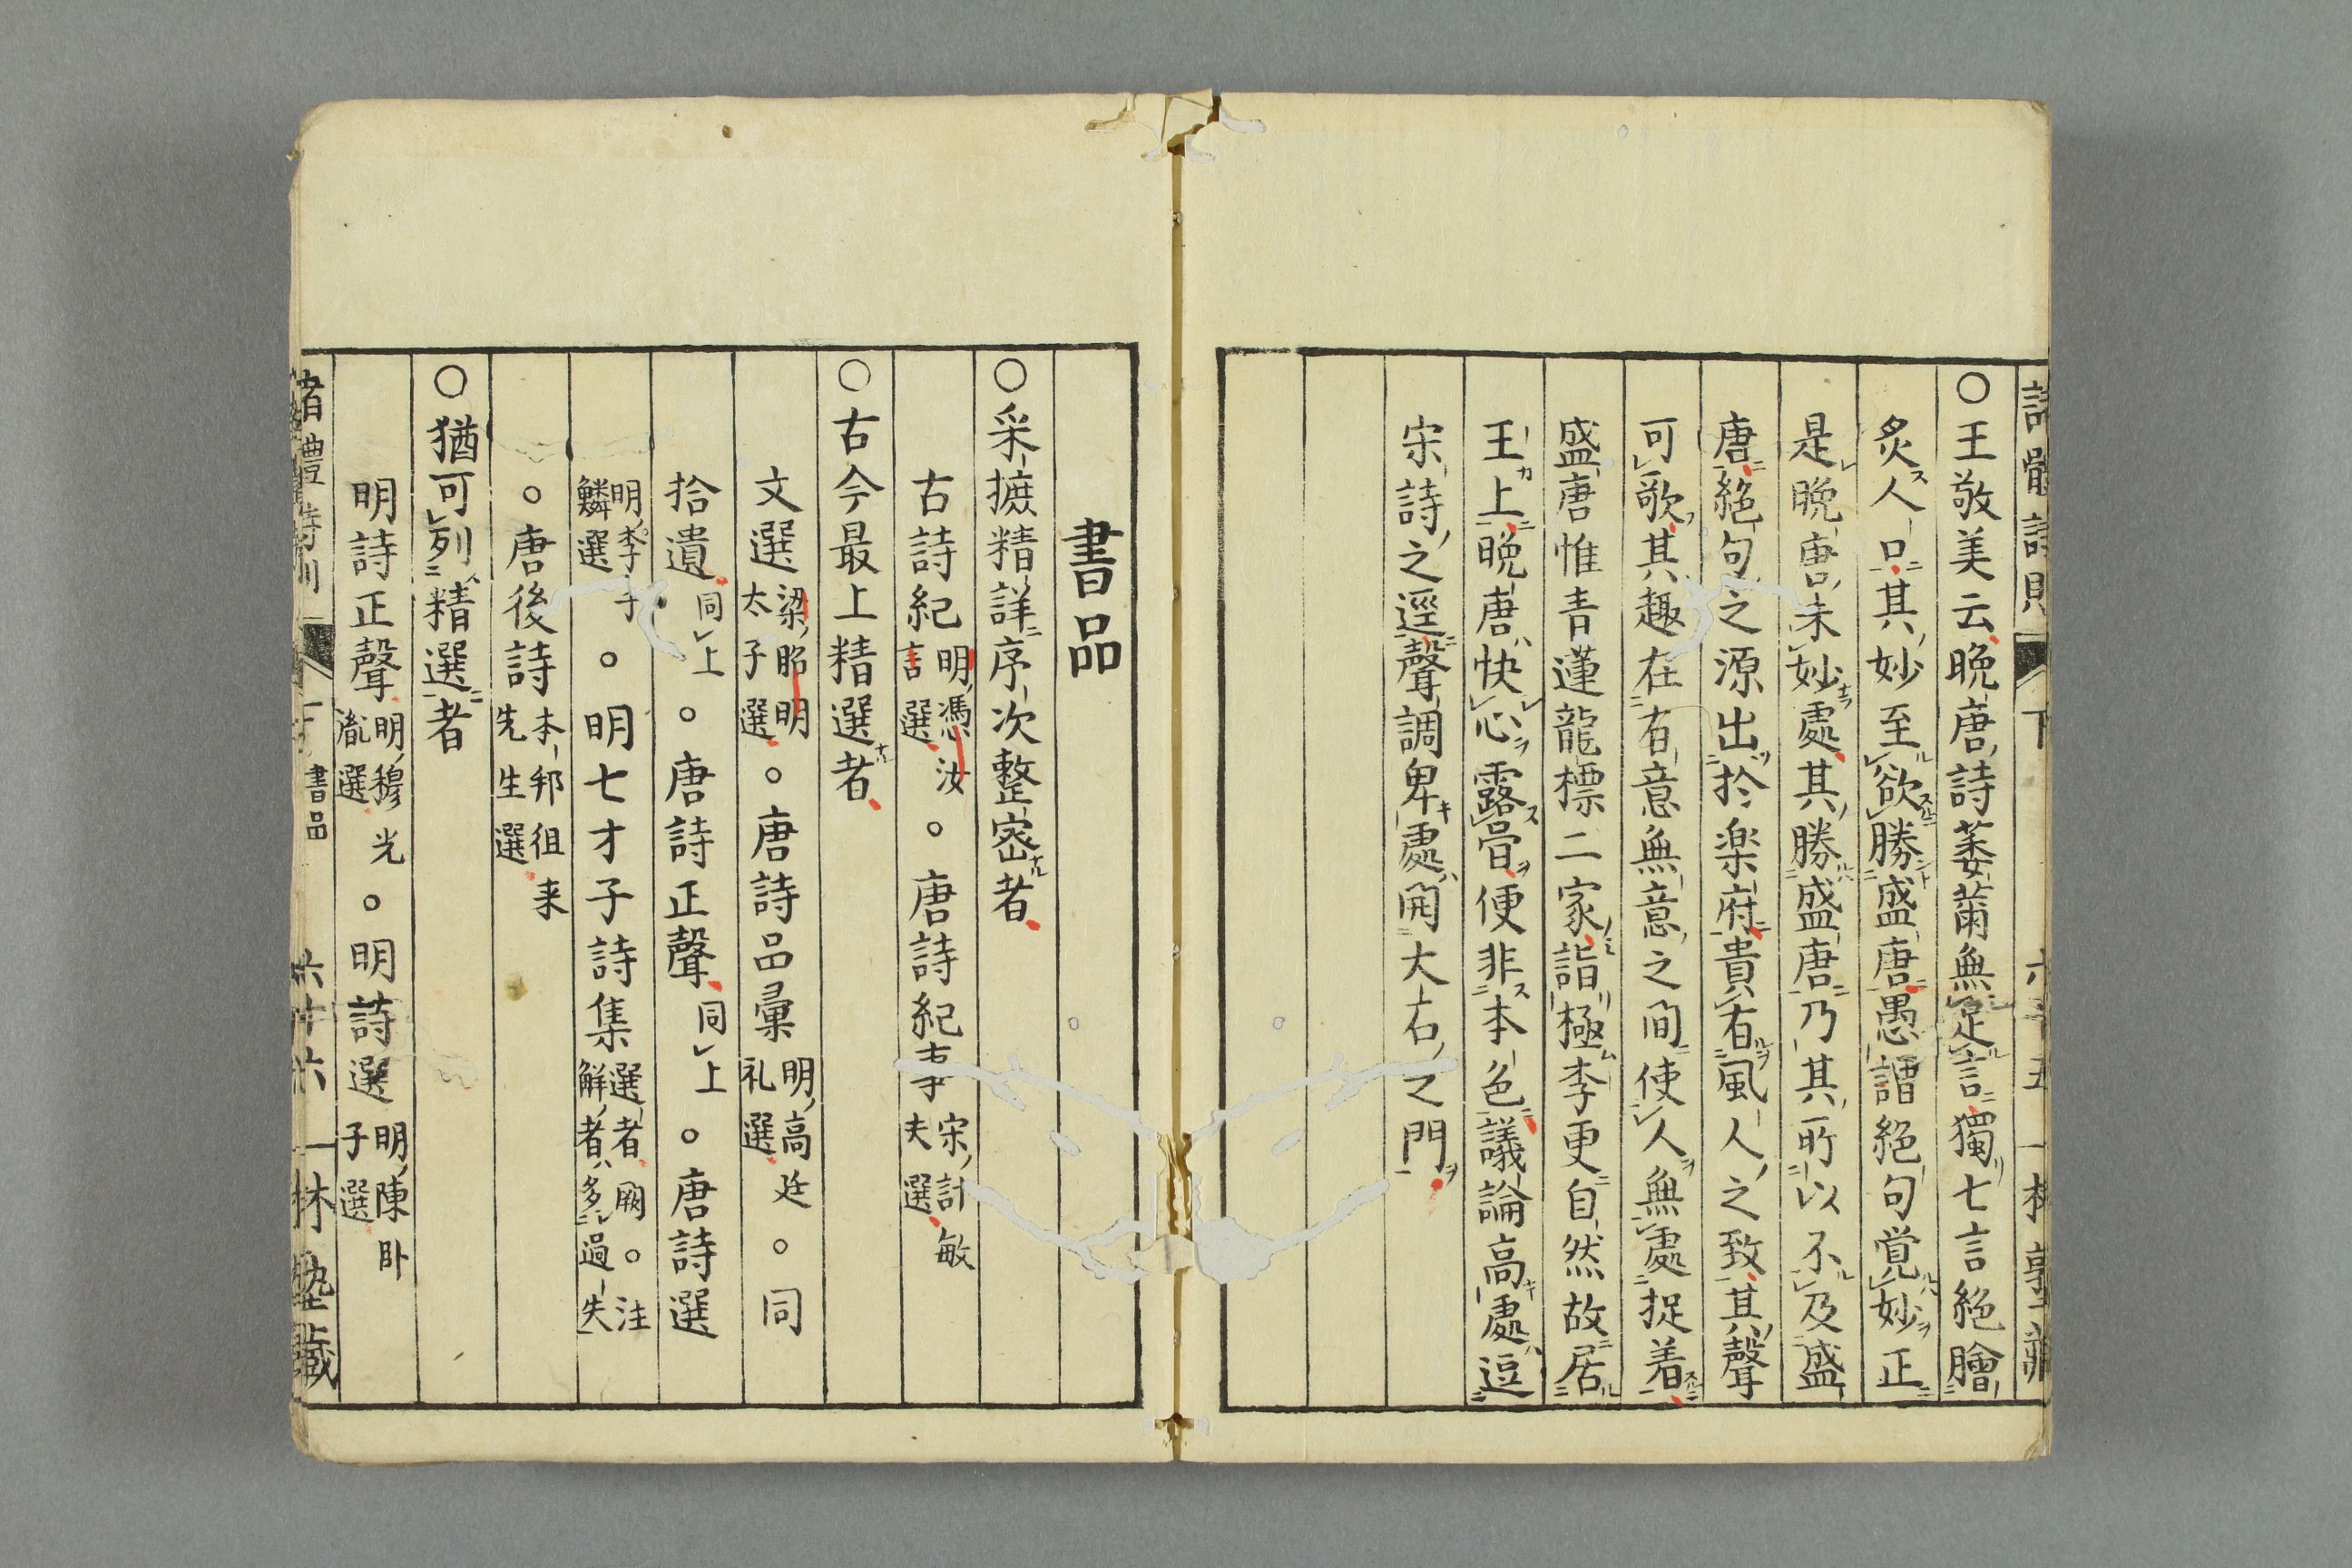 ○王敬美云晩唐詩萎薾無足言獨七言絶膾
炙人口其妙至欲勝盛唐愚謂絶句覚妙正
是晩唐未妙處其勝盛唐乃其所以不及盛
唐絶句之源出於楽府貴有風人之致其聲
可歌其趣在有意無意之間使人無處捉着
盛唐惟青蓮龍標二家詣極李更自然故居
王上晩唐快心露骨便非本色議論高處逗
宋詩之逕聲調卑處開大石之門
書品
○采摭精詳序次整密者
古詩紀明馮汝言選。唐詩紀事宋計敏夫選
○古今最上精選者
文選梁昭明太子選。唐詩品彙明高廷礼選。同
拾遺同上。唐詩正聲同上。唐詩選
明李于鱗選。明七才子詩集選者闕。注解者多過失
。唐後詩本邦徂来先生選
○猶可列精選者
明詩正聲明穆光胤選。明詩選明陳卧子選
書品
六十六